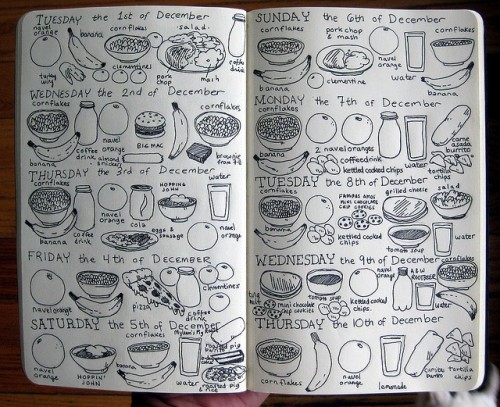 TUESDAY the 1st of December
navel orange
banana
cornflakes
salad
coffee drink
clementines
pork chop
mash
WEDNESDAY the 2nd of December
cornflakes
banana
coffee drink
navel orange
almond snickers
BIG MAC
cornflakes
THURSDAY the 3rd of December
cornflakes
banana
coffee drink
navel orange
cola
HOPPING JOHN
eggs & sausage
water
navel orange
FRIDAY the 4th of DECEMBER
navel orange
pizza
coffee drink
clementines
SATURDAY the 5th of December
navel orange
HOPPIN' JOHN
cornflakes
banana
water
roasted pig & rice
SUNDAY the 6th of December
cornflakes
banana
clementine
pork chop & mash
navel orange
water
cornflakes
banana
MONDAY the 7th of December
cornflakes
banana
2 navel oranges
coffee drink
kettled cooked chips
water
carne asada burrito
tortilla chips
TUESDAY the 8th of December
cornflakes
banana
FAMOUS AMOS MINI CHOCOLATE CHIP COOKIES
kettled cooked chips
grilled cheese
tomato soup
salad
water
WEDNESDAY the 9th of December
mini chocolate chip cookies
tomato soup
kettled cooked chips
navel orange
A & W ROOTBEER
water
cornflakes
banana
THURSDAY the 10th of December
cornflakes
banana
navel orange
lemonade
tortilla chips